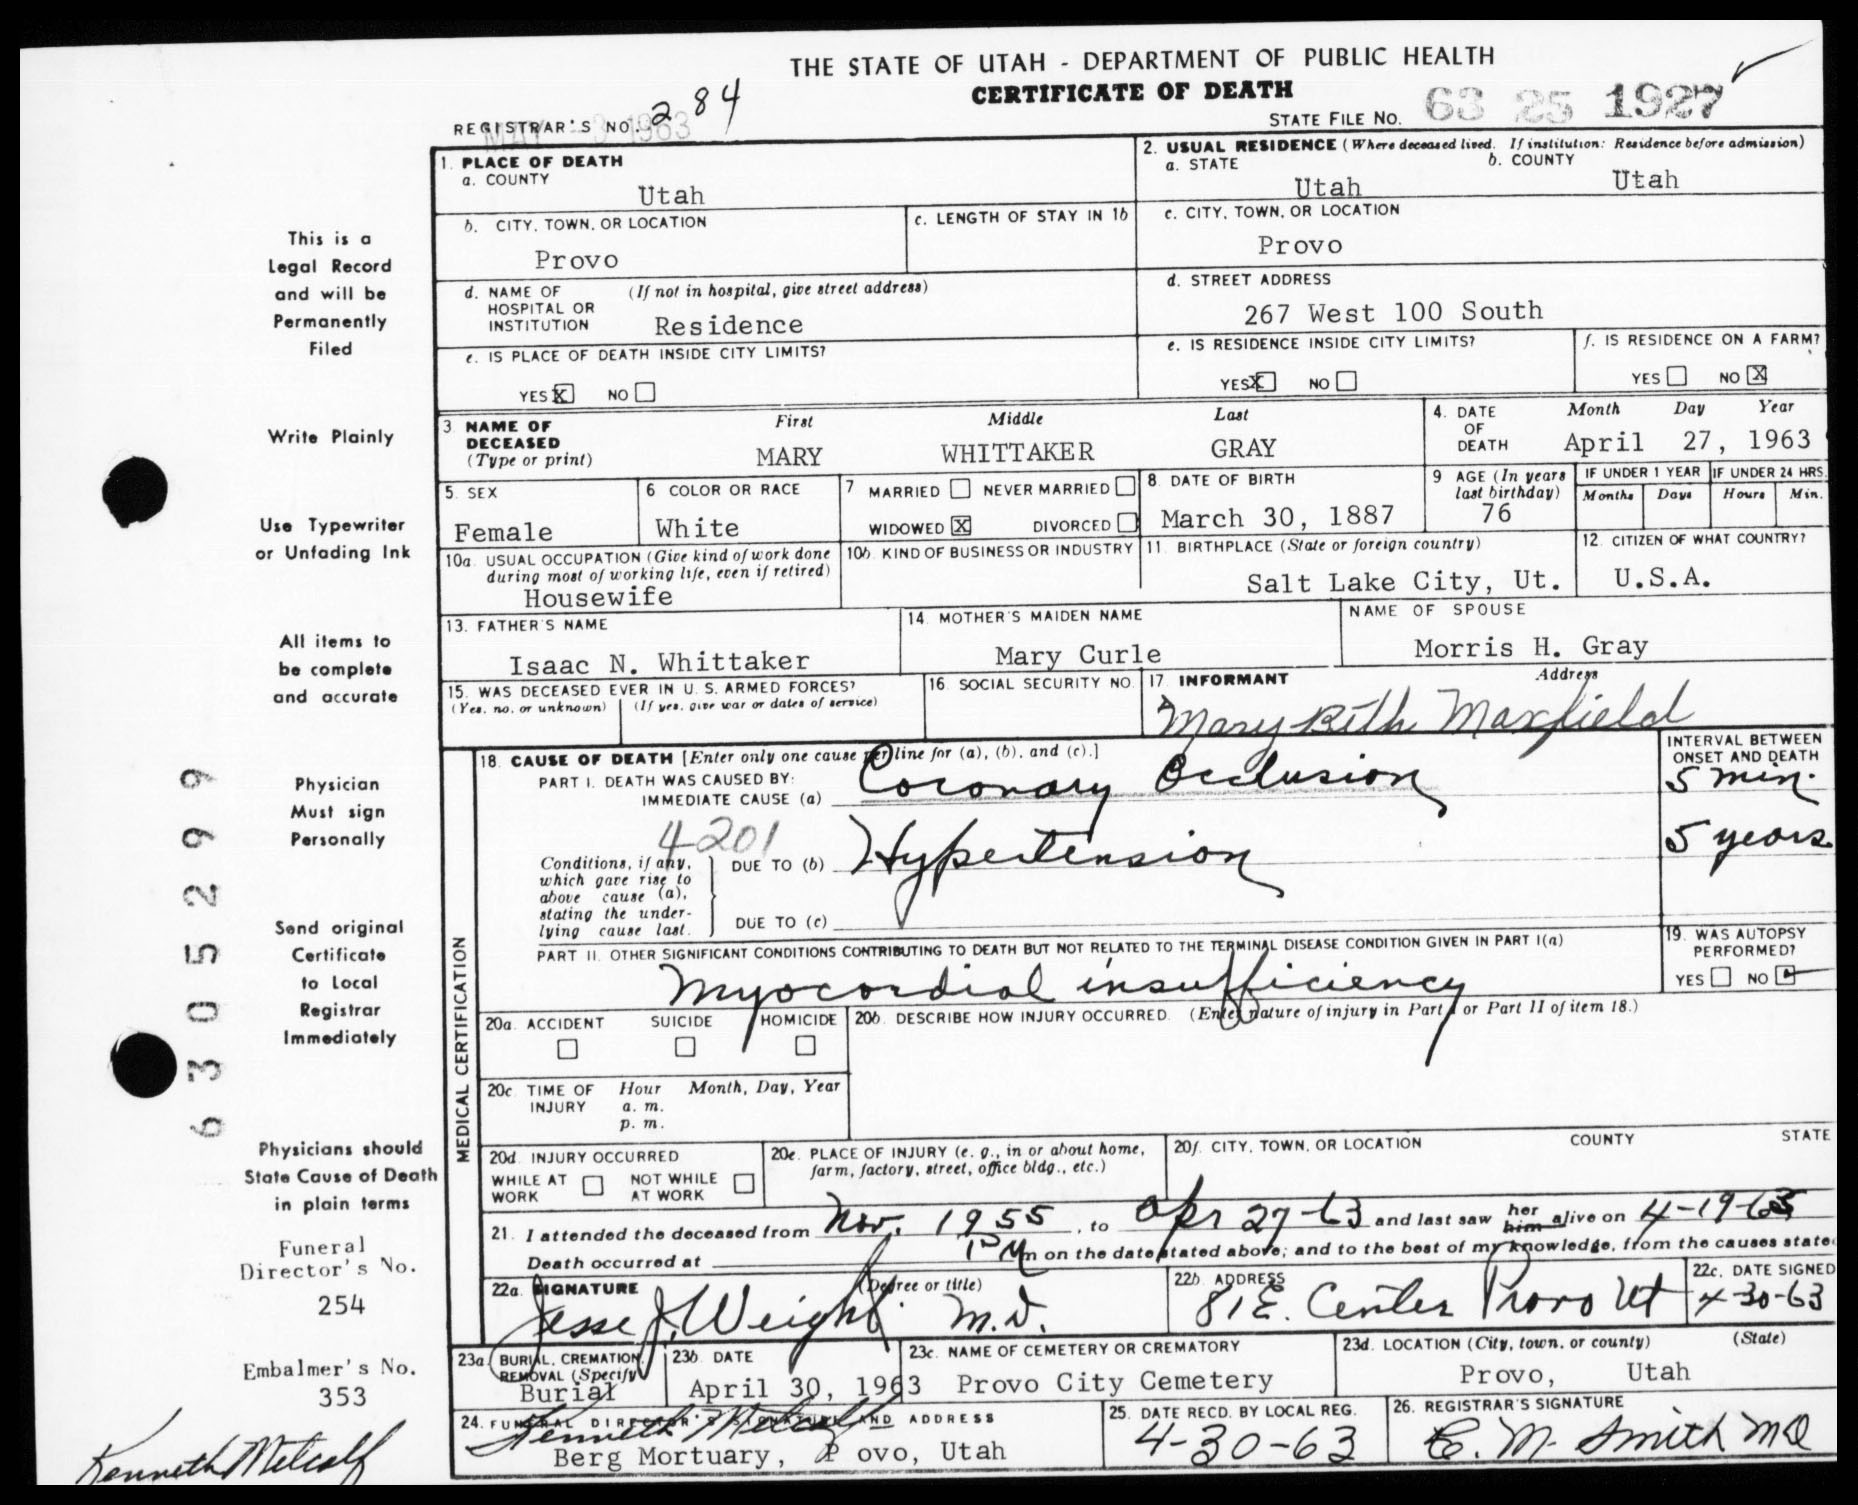 THE STATE OF UTAH - DEPARTMENT OF PUBLIC HEALTH
CERTIFICATE OF DEATH
REGISTRAR'S NO. 284
MAY -3 1963
STATE FILE NO. 63 25 1927
1. PLACE OF DEATH
a. COUNTY
Utah
2. USUAL RESIDENCE (Where deceased lived. If institution: Residence before admission)
a. STATE b. COUNTY
Utah Utah
b. CITY, TOWN, OR LOCATION
Provo
c. LENGTH OF STAY IN 1b
c. CITY, TOWN, OR LOCATION
Provo
d. NAME OF HOSPITAL OR INSTITUTION (If not in hospital, give street address)
Residence
d. STREET ADDRESS
267 West 100 South
e. IS PLACE OF DEATH INSIDE CITY LIMITS?
YES X NO
e. IS RESIDENCE INSIDE CITY LIMITS?
YES X NO
f. IS RESIDENCE ON A FARM?
YES NO X
3 NAME OF DECEASED (Type or print)
First Middle Last
MARY WHITTAKER GRAY
4. DATE OF DEATH
Month Day Year
April 27, 1963
5. SEX
Female
6 COLOR OR RACE
White
7 MARRIED NEVER MARRIED
WIDOWED X DIVORCED
8. DATE OF BIRTH
March 30, 1887
9 AGE (In years last birthday)
76
IF UNDER 1 YEAR
Months Days
IF UNDER 24 HRS.
Hours Min.
10a. USUAL OCCUPATION (Give kind of work done during most of working life, even if retired)
Housewife
10b. KIND OF BUSINESS OR INDUSTRY
11. BIRTHPLACE (State or foreign country)
Salt Lake City, Ut.
12. CITIZEN OF WHAT COUNTRY?
U.S.A.
13. FATHER'S NAME
Isaac N. Whittaker
14. MOTHER'S MAIDEN NAME
Mary Curle
NAME OF SPOUSE
Morris H. Gray
15. WAS DECEASED EVER IN U. S. ARMED FORCES?
(Yes, no, or unknown) (If yes, give war or dates of service)
16. SOCIAL SECURITY NO.
17. INFORMANT Address
Mary Beth Maxfield
MEDICAL CERTIFICATION
18. CAUSE OF DEATH [Enter only one cause per line for (a), (b), and (c).]
PART I. DEATH WAS CAUSED BY:
IMMEDIATE CAUSE (a) Coronary Occlusion
INTERVAL BETWEEN ONSET AND DEATH
5 min.
4201
Conditions, if any, which gave rise to above cause (a), stating the underlying cause last.
DUE TO (b) Hypertension
5 years.
DUE TO (c)
PART II. OTHER SIGNIFICANT CONDITIONS CONTRIBUTING TO DEATH BUT NOT RELATED TO THE TERMINAL DISEASE CONDITION GIVEN IN PART I(a)
Myocordial insufficiency
19. WAS AUTOPSY PERFORMED?
YES NO
20a. ACCIDENT SUICIDE HOMICIDE
20b. DESCRIBE HOW INJURY OCCURRED. (Enter nature of injury in Part I or Part II of item 18.)
20c. TIME OF INJURY Hour Month, Day, Year
a. m.
p. m.
20d. INJURY OCCURRED
WHILE AT WORK NOT WHILE AT WORK
20e. PLACE OF INJURY (e. g., in or about home, farm, factory, street, office bldg., etc.)
20f. CITY, TOWN, OR LOCATION COUNTY STATE
21. I attended the deceased from Nov. 1955, to Apr 27-63 and last saw her him alive on 4-19-63
Death occurred at 1 P m on the date stated above; and to the best of my knowledge, from the causes state
22a. SIGNATURE (Degree or title)
Jesse J. Weight M.D.
22b. ADDRESS
81 E. Center Provo Ut
22c. DATE SIGNED
4-30-63
23a. BURIAL, CREMATION, REMOVAL (Specify)
Burial
23b. DATE
April 30, 1963
23c. NAME OF CEMETERY OR CREMATORY
Provo City Cemetery
23d. LOCATION (City, town, or county) (State)
Provo, Utah
24. FUNERAL DIRECTOR'S SIGNATURE AND ADDRESS
Kenneth Metcalf
Berg Mortuary, P ovo, Utah
25. DATE RECD. BY LOCAL REG.
4-30-63
26. REGISTRAR'S SIGNATURE
C. M. Smith MD
This is a
Legal Record
and will be
Permanently
Filed
Write Plainly
Use Typewriter
or Unfading Ink
All items to
be complete
and accurate
Physician
Must sign
Personally
Send original
Certificate
to Local
Registrar
Immediately
Physicians should
State Cause of Death
in plain terms
Funeral
Director's No.
254
Embalmer's No.
353
Kenneth Metcalf
6305299